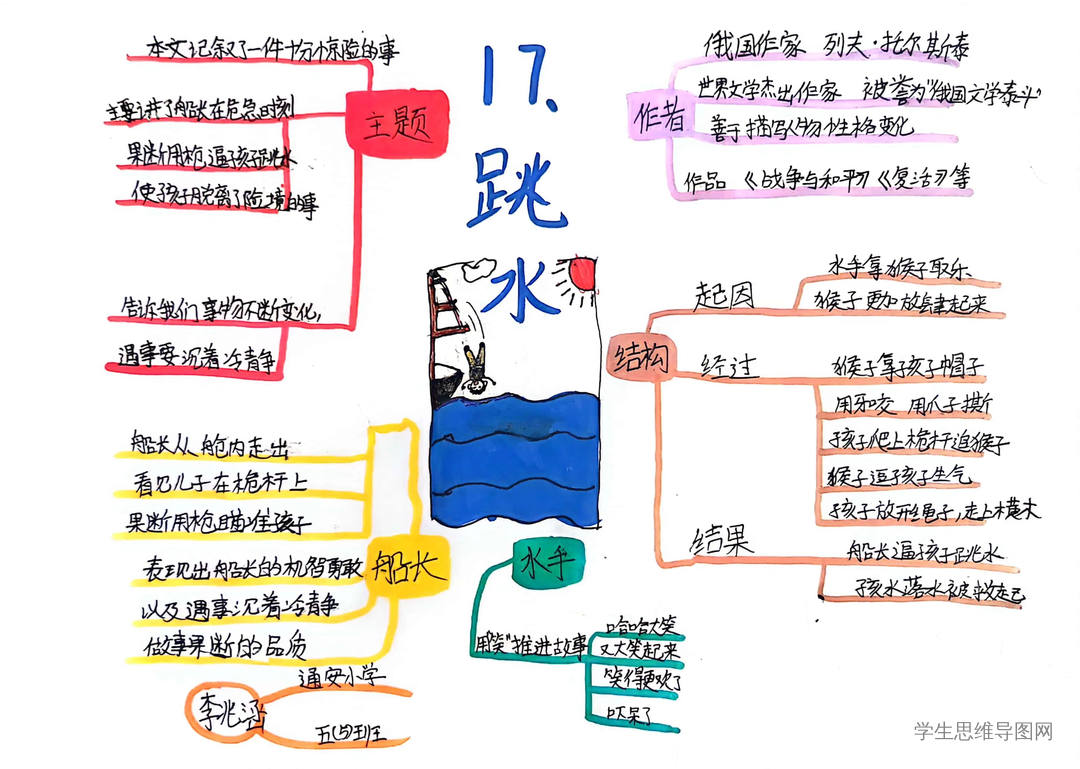 17、
跳
水
主题
本文记叙了一件十分惊险的事
主要讲了船长在危急时刻
果断用枪逼孩子跳水
使孩子脱离了险境的事
告诉我们事物不断变化,
遇事要沉着冷静
作者
俄国作家 列夫·托尔斯泰
世界文学杰出作家 被誉为"俄国文学泰斗"
善于描写人物性格变化
作品《战争与和平》《复活》等
结构
起因
水手拿猴子取乐
猴子更加放肆起来
经过
猴子拿孩子帽子
用牙咬 用爪子撕
孩子爬上桅杆追猴子
猴子逗孩子生气
孩子放开绳子,走上横木
结果
船长逼孩子跳水
孩水落水被救起
船长
船长从舱内走出
看见儿子在桅杆上
果断用枪瞄准孩子
表现出船长的机智勇敢
以及遇事沉着冷静
做事果断的品质
水手
用"笑"推进故事
哈哈大笑
又大笑起来
笑得更欢了
吓呆了
李兆涵
通安小学
五(5)班
学生思维导图网